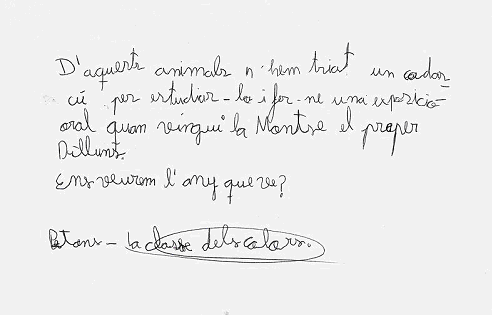 D'aquests animals n'hem triat un cadas-
cú per estudiar-lo i fer-ne una exposició
oral quan vingui la Montse el proper
Dilluns.
Ens veurem l'any que ve?
Petons - La classe dels colors.